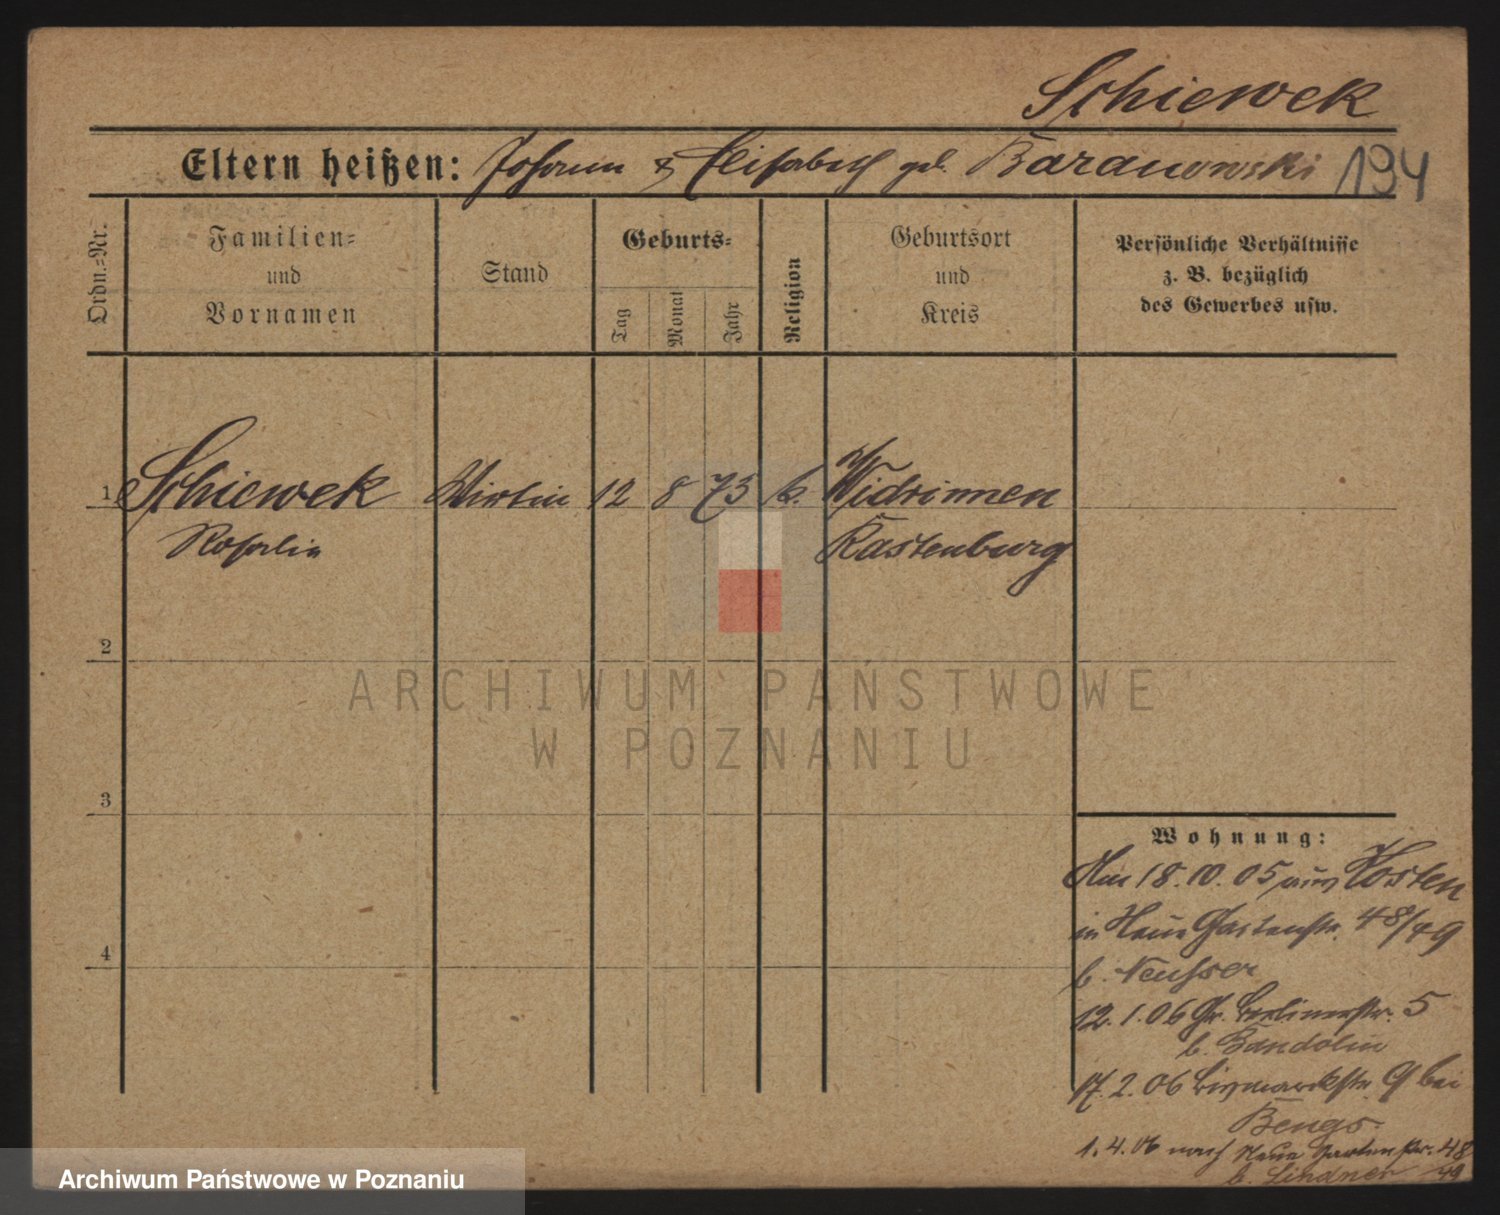 Schiewek
Eltern heißen: Johann & Elisabeth geb. Baranowski 194
Ordn.-Nr.
Familien-
und
Vornamen
Stand
Geburts-
Tag
Monat
Jahr
Religion
Geburtsort
und
Kreis
Persönliche Verhältnisse
z. B. bezüglich
des Gewerbes usw.
1 Schiewek Wirtin 12 8 73 k. Widrinnen
Rosalie Rastenburg
2
3
4
Wohnung:
Am 18.10.05 aus Kosten
in Neue Gartenstr. 48/49
b.
12.1.06 Gr. Berlinerstr. 5
b. Bandolin
17.2.06 Bismarckstr. 9 bei
Bengs.
1.4.06 nach Neue Gartenstr. 48
b. Lindner 49
ARCHIWUM PAŃSTWOWE
W POZNANIU
Archiwum Państwowe w Poznaniu